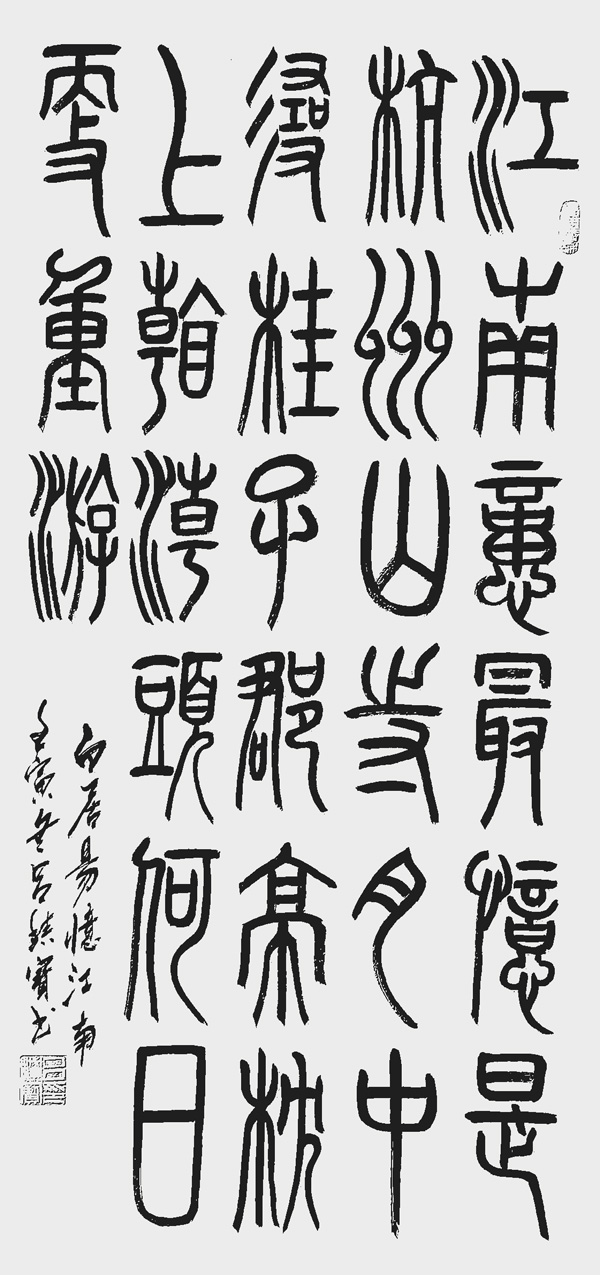 江南憶最憶是
杭州山寺月中
尋桂子郡亭枕
上看潮頭何日
更重游
白居易憶江南
壬寅冬呂寶书